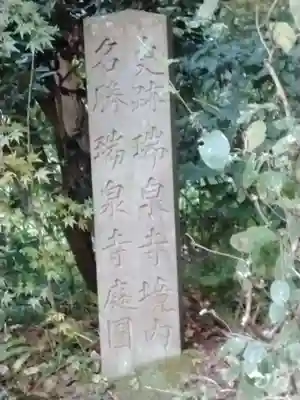 史跡 瑞泉寺境内
名勝 瑞泉寺庭園